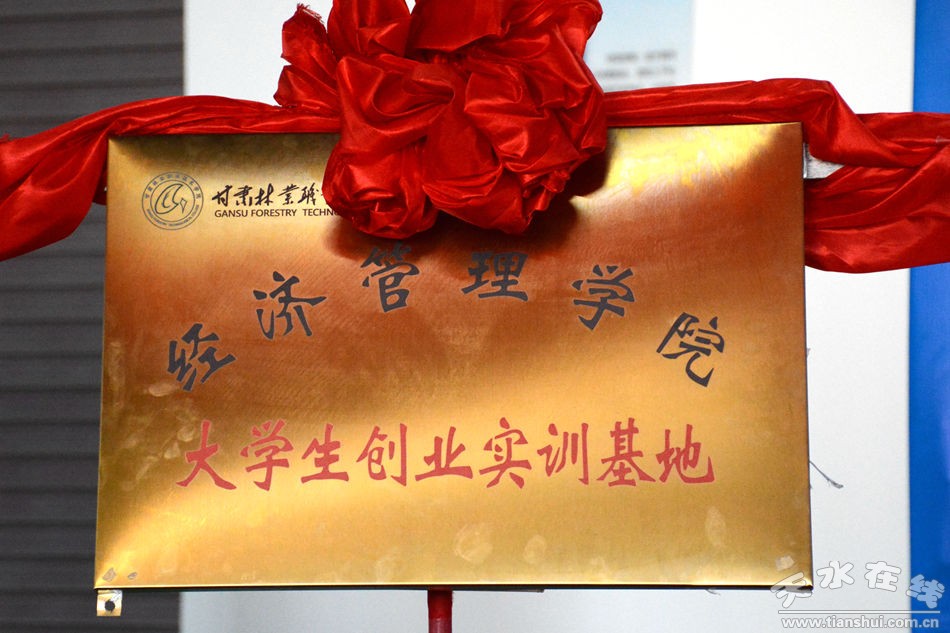 甘肃林業職
GANSU FORESTRY TECHNO
经济管理学院
大学生创业实训基地
天水在线
www.tianshui.com.cn